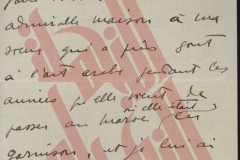 admirable maison à ma
soeur qui a pris goût
à l'art arabe pendant les
années qu'elle vient de
si elle était
passer au maroc
garnison, et je lui ai